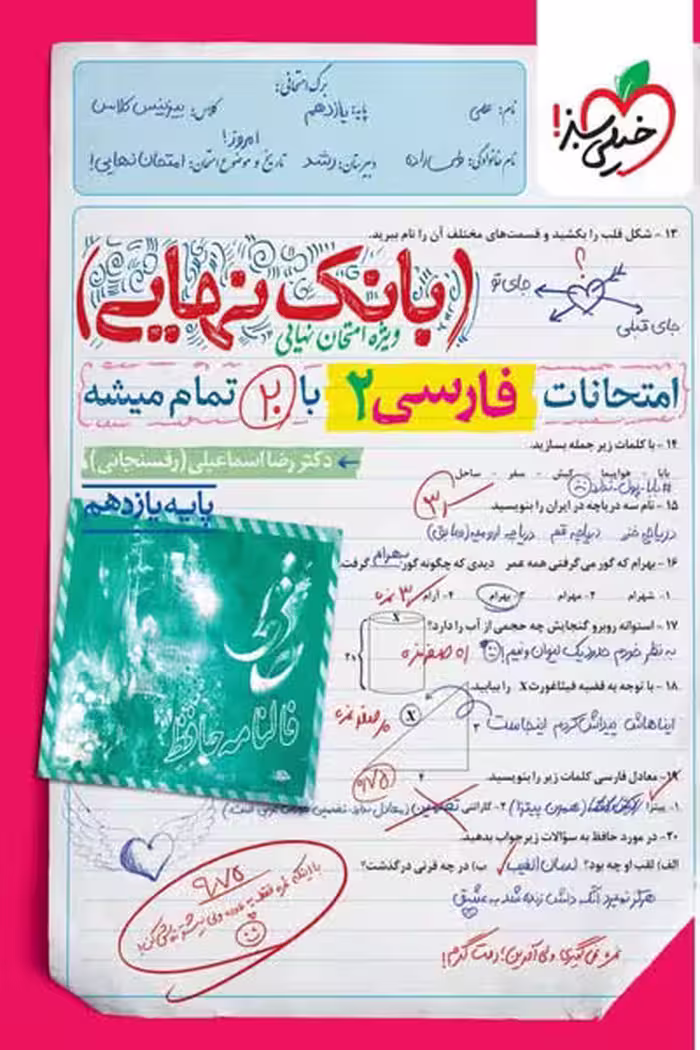 خیلی سبز!
برگ امتحانی:
نام: علی
پایه: یازدهم
کلاس: بیزینس کلاس
نام خانوادگی:
دبیرستان: رشد
تاریخ و موضوع امتحان: امتحان نهایی!
امروز!
۱۳ - شکل قلب را بکشید و قسمت‌های مختلف آن را نام ببرید.
؟
جای تو
جای قبلی
(بانک نهایی)
ویژه امتحان نهایی
امتحانات فارسی ۲ با ۲۰ تمام میشه
۱۴ - با کلمات زیر جمله بسازید.
بابا - هواپیما - کیش - سفر - ساحل
#بابا_پول_نداره
← دکتر رضا اسماعیلی (رفسنجانی)
پایه یازدهم
۱۵ - نام سه دریاچه در ایران را بنویسید.
دریاچه خزر دریاچه قم دریاچه ارومیه
۱۶ - بهرام که گور می‌گرفتی همه عمر دیدی که چگونه گور بهرام گرفت.
۱- شهرام ۲- مهرام ۳- بهرام ۴- آرام
۱۷ - استوانه روبرو گنجایش چه حجمی از آب را دارد؟
X
۲۰
به نظر خودم حدود یک لیوان و نیم!
۱۸ - با توجه به قضیه فیثاغورث X را بیابید.
X
۳
۴
ایناهاش پیداش کردم اینجاست
فالنامه حافظ
۱۹- معادل فارسی کلمات زیر را بنویسید.
۱- پیتزا (همون پیتزا) ۲- گارانتی تضمین
۲۰- در مورد حافظ به سؤالات زیر جواب بدهید.
الف) لقب او چه بود؟ لسان الغیب ب) در چه قرنی درگذشت؟
هرگز نمیرد آنکه دلش زنده شد به عشق
۹٫۷۵
نمره نمی‌گیری ولی آفرین! دمت گرم!